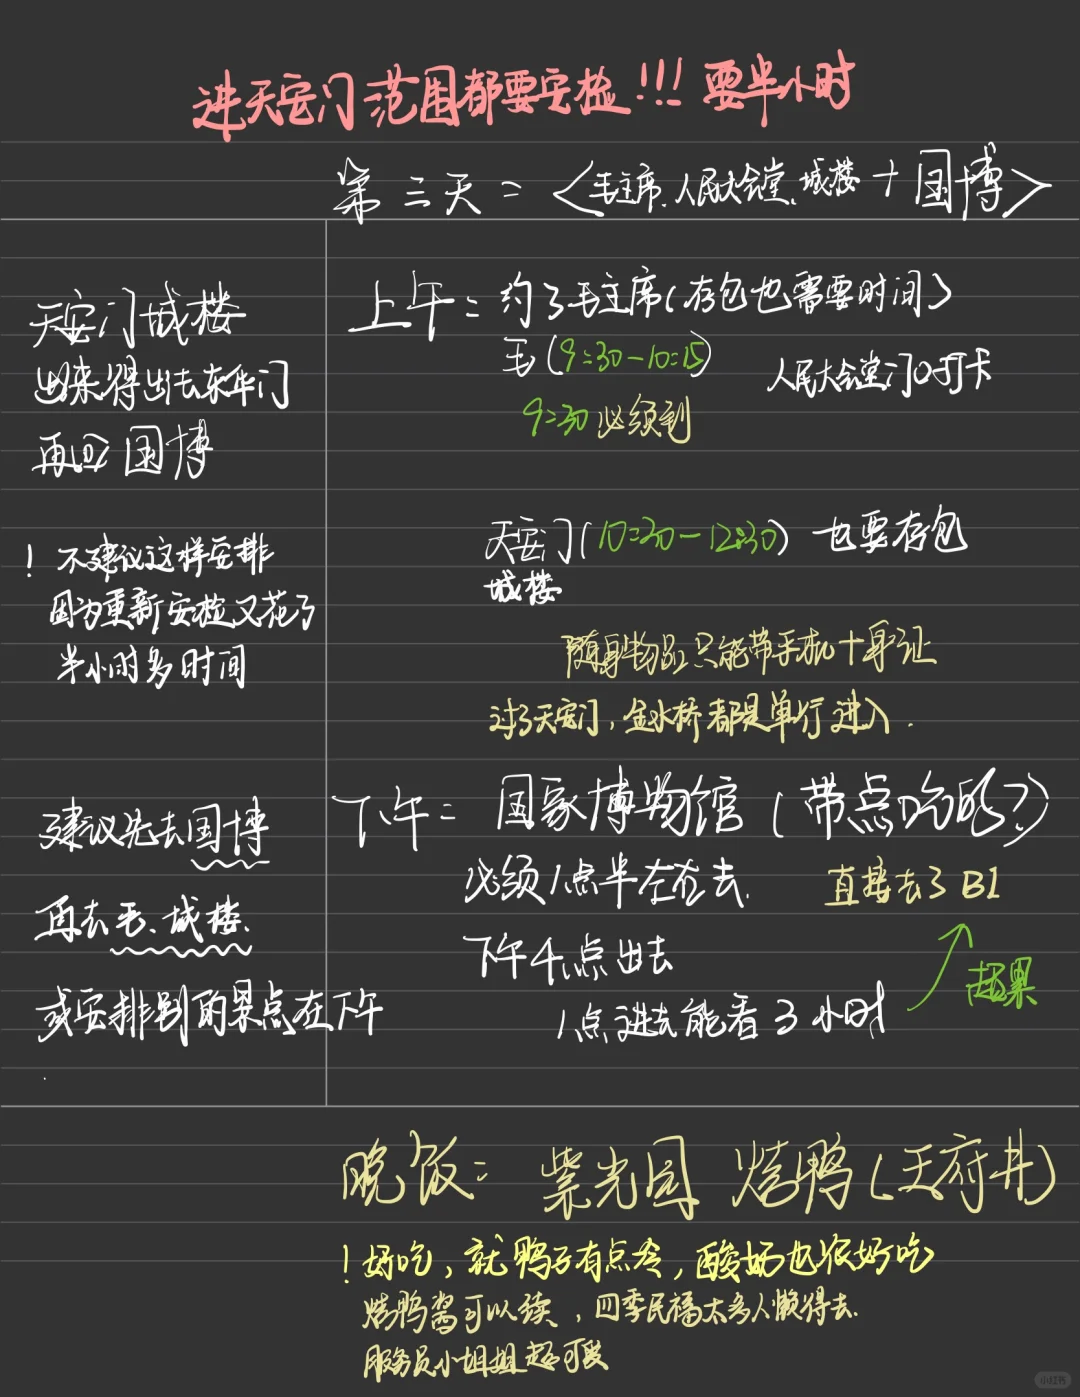 进天安门范围都要安检!!! 要半小时
第三天: <毛主席、人民大会堂、城楼+国博>
天安门城楼
出来得出去东华门
再回国博
! 不建议这样安排
因为重新安检又花了
半小时多时间
建议先去国博
再去毛、城楼、
或安排别的景点在下午
上午: 约了毛主席(存包也需要时间)
毛(9:30-10:15) 人民大会堂门口打卡
9:30必须到
天安门(10:30-12:30) 也要存包
城楼
随身物品只能带手机+身份证
过了天安门,金水桥都是单行进入.
下午: 国家博物馆(带点吃的?)
必须1点半左右去. 直接去了B1
下午4点出去
超累
1点进去能看3小时
晚饭: 紫光园 烤鸭(王府井)
! 好吃,就鸭子有点冷,酸奶也很好吃
烤鸭酱可以续,四季民福太多人懒得去.
服务员小姐姐超可爱
小红书